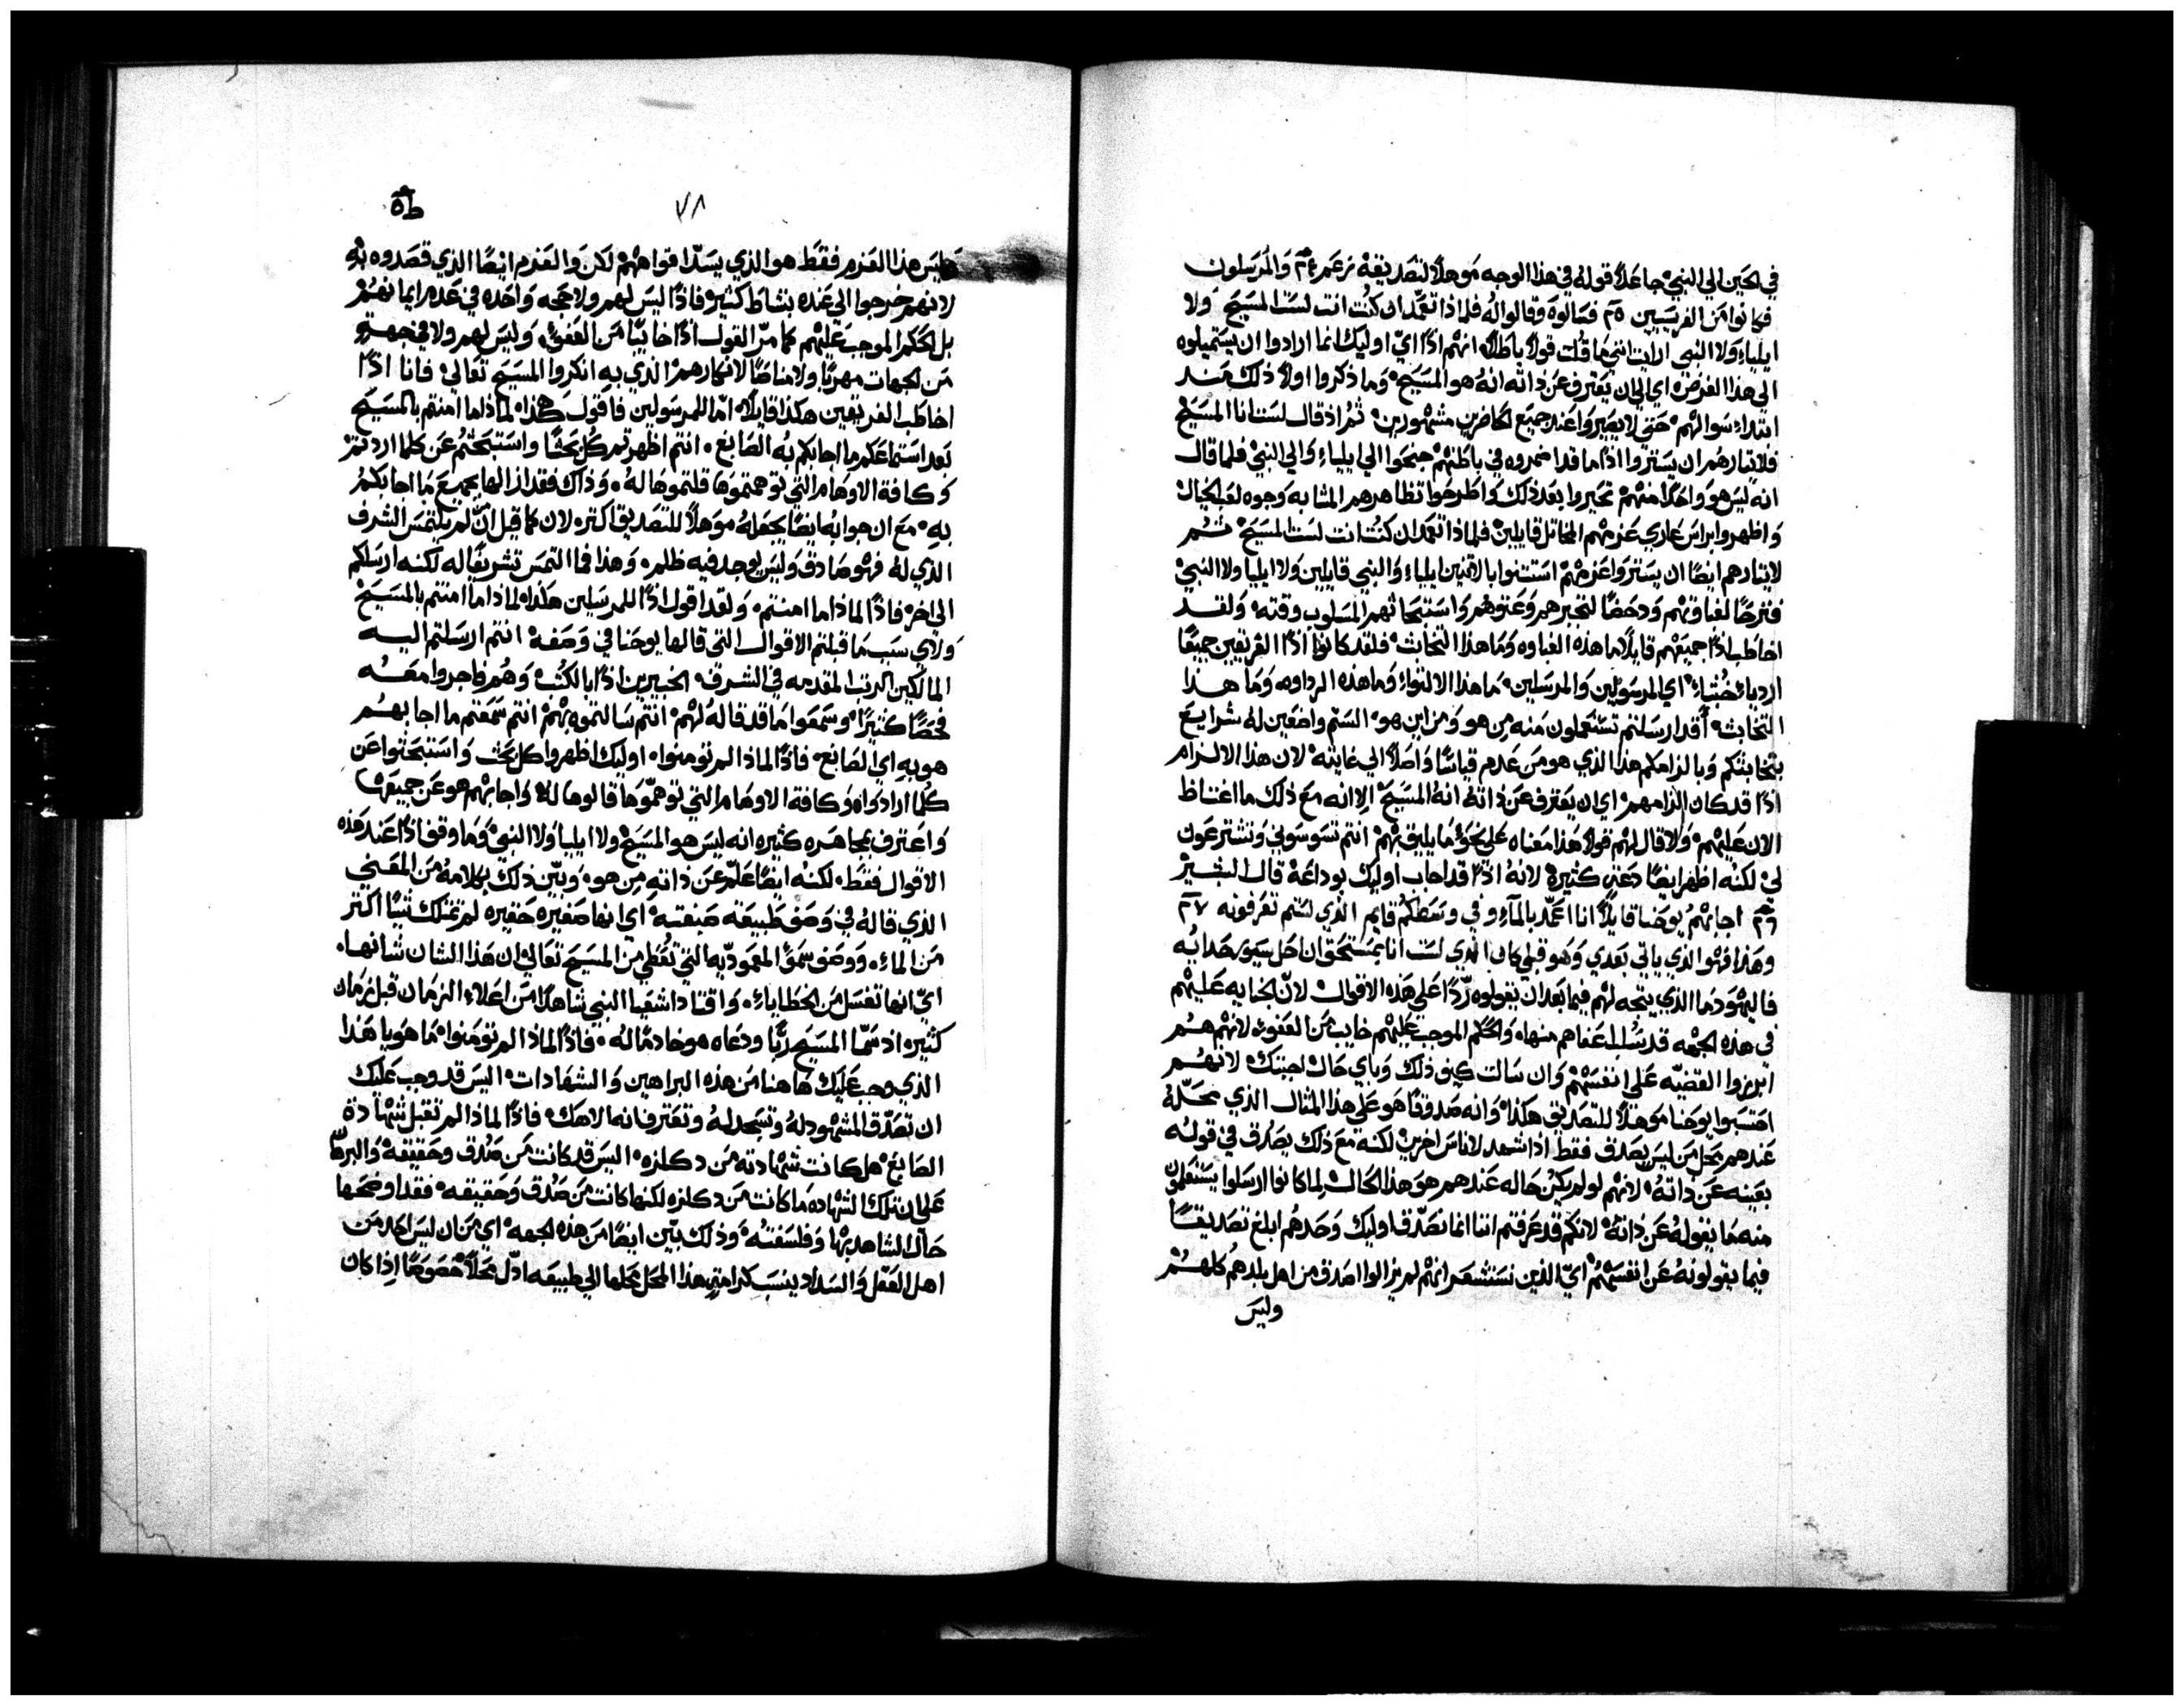 في الحين الي النبي جاعلاً قوله في هذا الوجه موهلاً لتصديقه بزعمه والمرسلون
فكانوا من الفريسيين ٢٥ فسالوه وقالوا له فلماذا تعمد ان كنت انت لست المسيح ولا
ايلياء ولا النبي ارايت انني ما قلت قولاً باطلاً انهم اذًا ايّ اوليك انما ارادوا ان يستميلوه
الي هذا الغرض اي الي ان يعترف عن ذاته انه هو المسيح وما ذكروا اولاً ذلك منذ
ابتداء سوالهم حتي لا يصيروا عند جميع الحاضرين مشهورين ثم اذ قال لست انا المسيح
فلايثارهم ان يستروا اذًا ما قد اضمروه في باطنهم جنحوا الي ايلياء والي النبي فلما قال
انه ليس هو واحدًا منهم تحيروا بعد ذلك واطرحوا تظاهرهم المشابه وجوه لعب الخيال
واظهروا براس عاري عزمهم المخاتل قايلين فلماذا تعمد ان كنت انت لست المسيح ثم
لايثارهم ايضًا ان يستروا عزمهم استثنوا بالاثنين ايلياء والنبي قايلين ولا ايليا ولا النبي
فترحًا لغباوتهم ودحضًا لتجبرهم وعتوهم واستبحاثهم المسلوب وقته ولقد
اخاطب اذًا جميعهم قايلاً ما هذه الغباوه وما هذا التخابث فلقد كانوا اذًا الفريقين جميعًا
اردياء خبثاء اي المرسولين والمرسلين ما هذا الالتواء وما هذه الرداوه وما هذا
التخابث أقد ارسلتم تستعملون منه من هو ومن اين هو الستم واضعين له شرايع
بتخابثكم وبالزامكم هذا الذي هو من عدم قياسًا واصلاً الي غايته لان هذا الالزام
اذًا قد كان الزامهم اي ان يعترف عن ذاته انه المسيح الا انه مع ذلك ما اغتاظ
الان عليهم ولا قال لهم قولاً هذا معناه علي نحو ما يليق بهم انتم تسوسوني وتشترعون
لي لكنه اظهر ايضًا دعه كثيره لانه اذًا قد اجاب اوليك بوداعة قال البشير
٢٦ اجابهم يوحنا قايلاً انا اعمّد بالماء وفي وسطكم قايم الذي لستم تعرفونه ٢٧
وهذا فهو الذي ياتي بعدي وهو قبلي كان الذي لست انا بمستحق ان احل سيور حدايه
فاليهود ما الذي يتجه لهم فيما بعد ان يقولوه ردًّا علي هذه الاقوال لانّ الجنايه عليهم
في هذه الجهه قد سُلب اعفاهم منها والحكم الموجب عليهم خايب من العفو لانهم هم
ابرزوا القضيّه علي انفسهم وان سالت كيف ذلك وباي حال اجبتك لانهم
احتسبوا يوحنا موهلاً للتصديق هكذا وانه صدوقًا هو علي هذا المثال الذي محلّه
عندهم محل من ليس يصدق فقط اذا شهد لاناس اخرين لكنه مع ذلك يصدق في قوله
بعينه عن ذاته لانهم لو لم يكن حاله عندهم هو هذا الحال لما كانوا ارسلوا يستعلمون
منه ما يقوله عن ذاته لانكم قد عرفتم اننا انما نصدّق اوليك وحدهم ابلغ تصديقًا
فيما يقولونه عن انفسهم ايّ الذين نستشعر انهم لم يزالوا اصدق من اهل بلدهم كلهم
وليس
٧٨
وليس هذا العزم فقط هو الذي يسدّ افواههم لكن والعزم ايضًا الذي قصدوه به
لانهم خرجوا الي عنده بنشاط كثير فاذًا ليس لهم ولا حجه واحده في عدم ايمانهم
بل الحكم الموجب عليهم كما مرّ القول اذًا خايبًا من العفو وليس لهم ولا في جهة
من الجهات مهربًا ولا مناصًا لانكارهم الذي به انكروا المسيح تعالي فانا اذًا
اخاطب الفريقين هكذا قايلاً امّا للمرسولين فاقول هكذا لماذا ما امنتم بالمسيح
بعد استماعكم ما اجابكم به الصابغ انتم اظهرتم كل بحثًا واستبحثتم عن كلما اردتم
وكافة الاوهام التي توهمتموها قلتموها له وذاك فقد ازالها بجميع ما اجابكم
به مع ان جوابه ايضًا يجعله موهلاً للتصديق اكتر لان كما قيل انّ لم يلتمس الشرف
الذي له فهو صادق وليس يوجد فيه ظلم وهذا فما التمس تشريفًا له لكنه ارسلكم
الي اخر فاذًا لماذا ما امنتم ولقد اقول اذًا للمرسلين هكذا لماذا ما امنتم بالمسيح
ولاي سبب ما قبلتم الاقوال التي قالها يوحنا في وصفه انتم ارسلتم اليه
المالكين الرتب المقدمه في الشرف الخبيرين اذًا بالكتب وهم فاجروا معه
فحصًا كثيرًا وسمعوا ما قد قاله لهم انتم سالتموه بهم انتم سمعتم ما اجابهم
هو به اي الصابغ فاذًا لماذا لم تومنوا اوليك اظهروا كل بحث واستبحثوا عن
كلما ارادواه وكافة الاوهام التي توهموها قالوها له واجابهم هو عن جميعها
واعترف بمجاهره كثيره انه ليس هو المسيح ولا ايليا ولا النبي وما وقف اذًا عند هذه
الاقوال فقط لكنه ايضًا علّم عن ذاته من هو وبيّن ذلك بكلامه من المعني
الذي قاله في وصف طبيعة صبغته اي انها صغيره حقيره لم تمتلك شيًا اكتر
من الماء ووصف سموّ المعموديه التي تعُطي من المسيح تعالي ان هذا الشان شانها
ايّ انها تغسل من الخطاياء واقتاد اشعيا النبي شاهدًا من اعلاء الزمان قبل زمان
كثير اذ سمّا المسيح ربًّا ودعاه هو خادمًا له فاذًا لماذا لم تومنوا ما هو يا هذا
الذي وجب عليك هاهنا من هذه البراهين والشهادات اليس قد وجب عليك
ان تصدّق المشهود له وتسجد له وتعترف انه الاهك فاذًا لماذا لم تقبل شهادة
الصابغ هل كانت شهادته من دكلزه اليس قد كانت من صدق وحقيقه والبرهان
علي ان تلك الشهاده ما كانت من دكلزه لكنها كانت من صدق وحقيقه فقد اوضحها
حال الشاهد بها وفلسفته وذلك بيّن ايضًا من هذه الجهه اي من ان ليس احد من
اهل العقل والسداد ينسب كرامةٍ هذا المحل محلها الي طبيعه ادلّ محلاً خصوصًا اذا كان